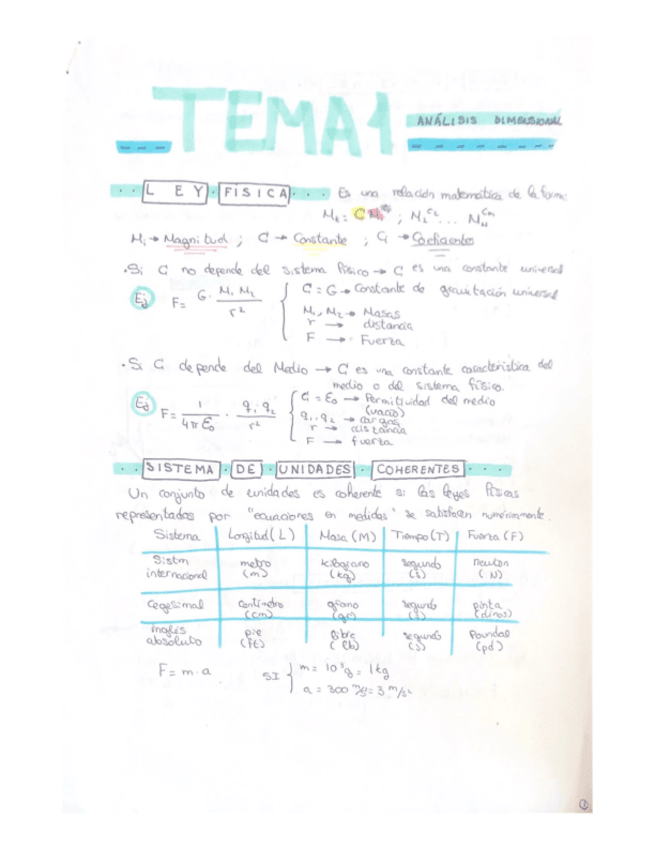 TEMA 1
ANÁLISIS DIMENSIONAL
LEY FISICA Es una relación matemática de la forma:
; M₂^C₂ ...
Mi → Magnitud ; C → Constante ; Ci → Coeficientes
· Si C no depende del sistema físico → C es una constante universal
Ej F = G · M₁ M₂ / r²
C = G → Constante de gravitación universal
M₁, M₂ → Masas
r → distancia
F → Fuerza
· Si C depende del Medio → C es una constante característica del
medio o del sistema físico.
Ej F = 1 / 4π ε₀ · q₁ q₂ / r²
C = ε₀ → Permitividad del medio
(vacío)
q₁, q₂ → cargas
r → distancia
F → fuerza
SISTEMA DE UNIDADES COHERENTES
Un conjunto de unidades es coherente si las leyes físicas
representadas por "ecuaciones en medidas" se satisfacen numéricamente.
Sistema Longitud (L) Masa (M) Tiempo (T) Fuerza (F)
Sistm internacional metro (m) kilogramo (kg) segundo (s) newton (N)
Cegesimal centímetro (cm) gramo (gr) segundo (s) (dinas)
Inglés absoluto pie (ft) libra (lb) segundo (s) Poundal (pd)
F = m · a SI m = 10³g = 1 kg
a = 300 = 3 m/s²